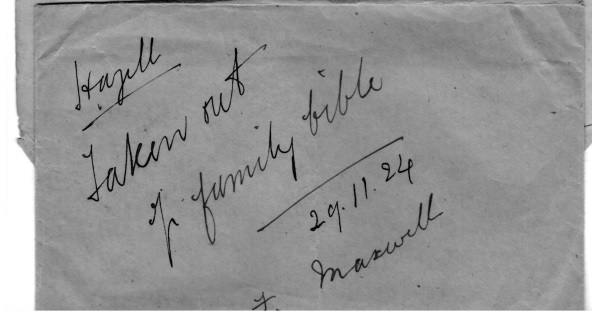 Hazell
Taken out
of family bible
29.11.24
F. Maxwell